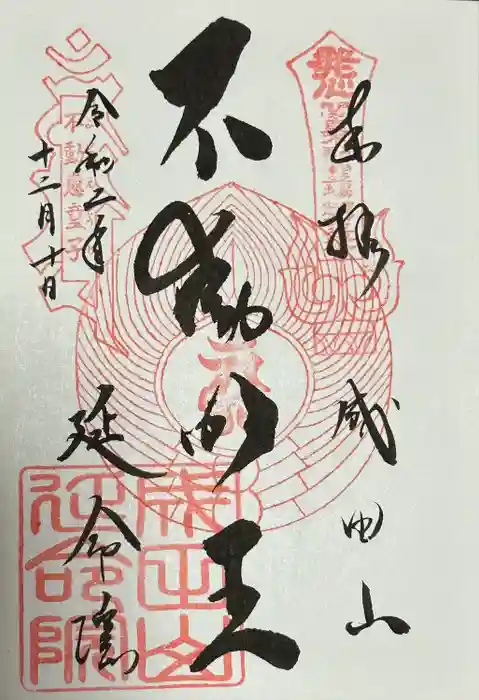 奉拝 成田山
不動明王
令和二年
十二月十日
延命院
不動慈童子
成田山
延命院